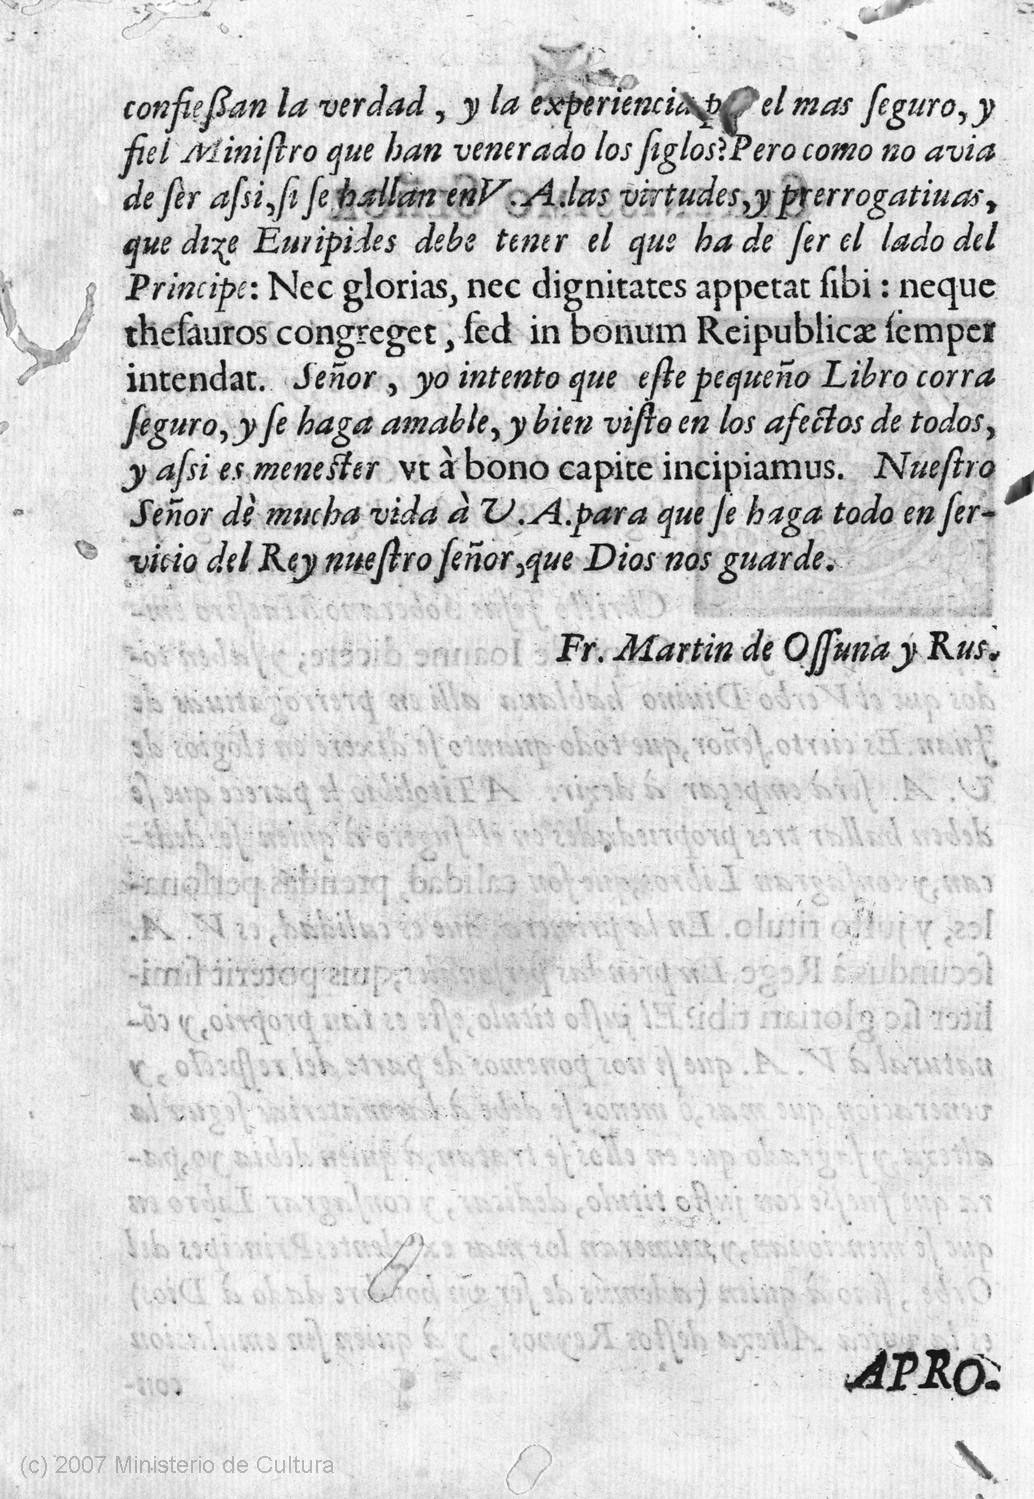 confieſſan la verdad, y la experiencia p el mas ſeguro, y
fiel Miniſtro que han venerado los ſiglos? Pero como no avia
de ſer aſsi, ſi ſe hallan en V. A. las virtudes, y prerrogatiuas,
que dize Euripides debe tener el que ha de ſer el lado del
Principe: Nec glorias, nec dignitates appetat ſibi: neque
theſauros congreget, ſed in bonum Reipublicæ ſemper
intendat. Señor, yo intento que eſte pequeño Libro corra
ſeguro, y ſe haga amable, y bien viſto en los afectos de todos,
y aſsi es meneſter vt à bono capite incipiamus. Nueſtro
Señor dè mucha vida à V. A. para que ſe haga todo en ſer-
vicio del Rey nueſtro ſeñor, que Dios nos guarde.
Fr. Martin de Oſſuna y Rus.
APRO-
(c) 2007 Ministerio de Cultura